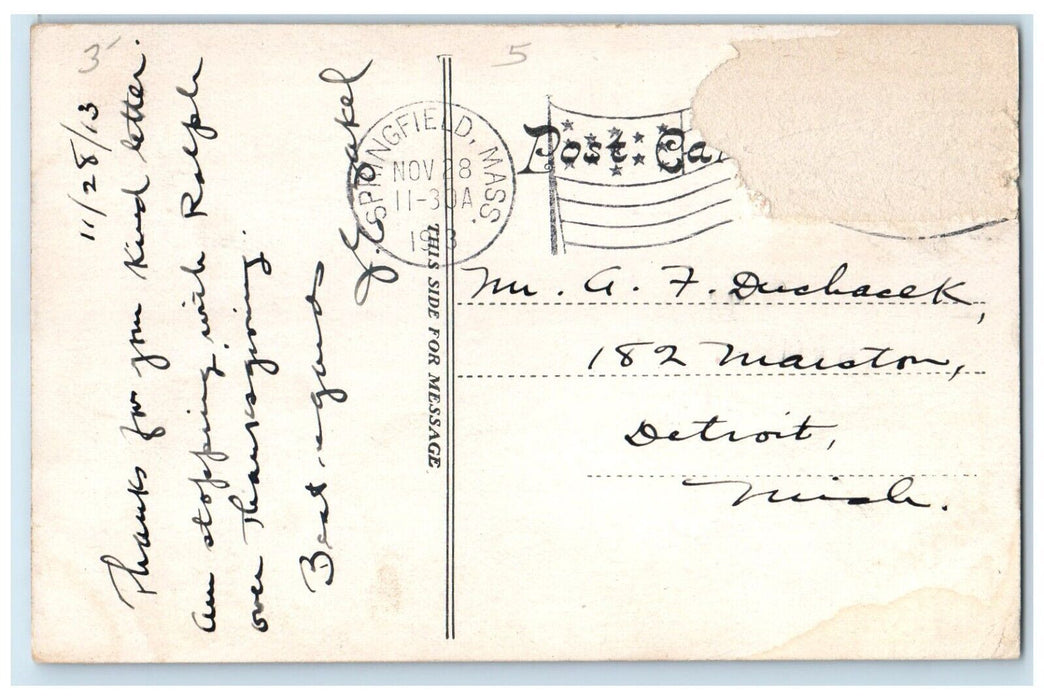 3
5
11/28/13
Thanks for your kind letter.
Am stopping with Ralph
over Thanksgiving.
Best regards
SPRINGFIELD, MASS.
NOV 28
11-30A
1913
Post Ca
THIS SIDE FOR MESSAGE
Mr. A. F. Duchacek,
182 Marston,
Detroit,
Mich.